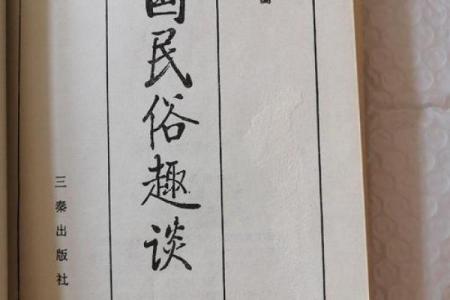 国民俗趣谈
三秦出版社